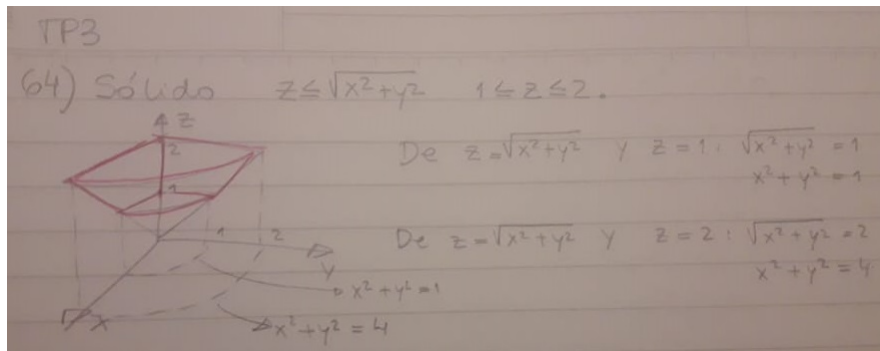 TP3
64) Sólido z ≤ √x²+y² 1 ≤ z ≤ 2.
z
2
1
De z=√x²+y² y z=1: √x²+y² = 1
x²+y² = 1
1 2
y
De z=√x²+y² y z=2: √x²+y² = 2
x²+y² = 4
x²+y²=1
x
x²+y² = 4